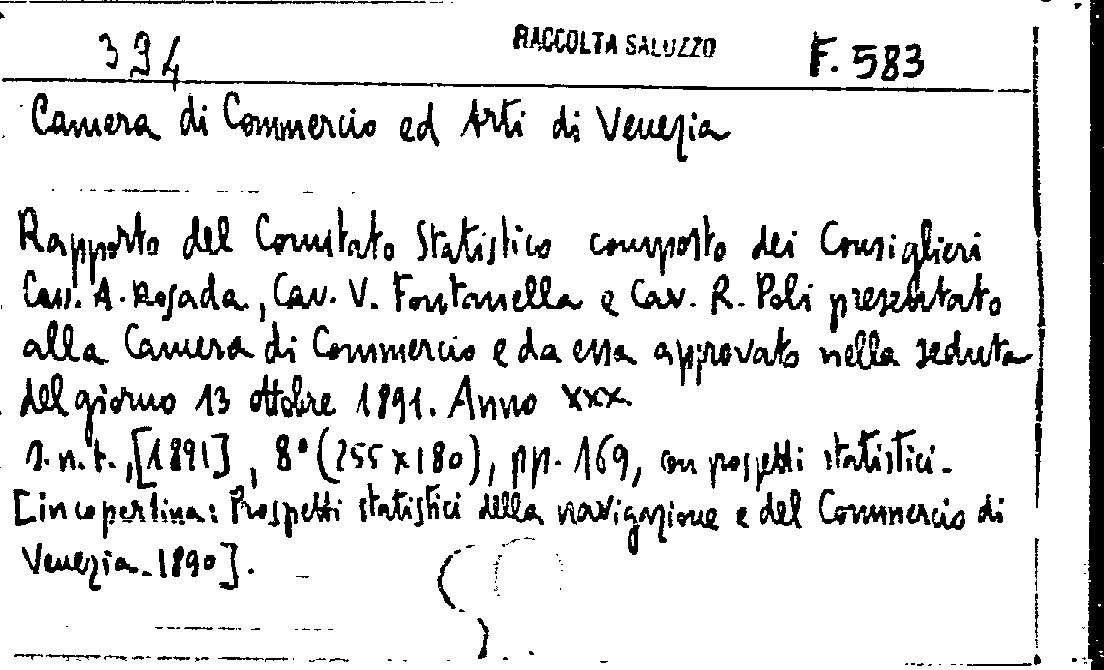 394 RACCOLTA SALUZZO F. 583
Camera di Commercio ed Arti di Venezia
Rapporto del Comitato Statistico composto dei Consiglieri
Cav. A. Rosada, Cav. V. Fontanella e Cav. R. Poli presentato
alla Camera di Commercio e da essa approvato nella seduta
del giorno 13 ottobre 1891. Anno XXX.
s.n.t., [1891], 8° (255x180), pp. 169, con prospetti statistici.
[in copertina: Prospetti statistici della navigazione e del Commercio di
Venezia - 1890].